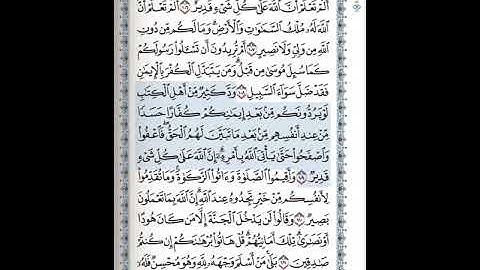 أَلَمْ تَعْلَمْ أَنَّ ٱللَّهَ عَلَىٰ كُلِّ شَىْءٍ قَدِيرٌ ۝١٠٦ أَلَمْ تَعْلَمْ أَنَّ
ٱللَّهَ لَهُۥ مُلْكُ ٱلسَّمَٰوَٰتِ وَٱلْأَرْضِ ۗ وَمَا لَكُم مِّن دُونِ
ٱللَّهِ مِن وَلِىٍّ وَلَا نَصِيرٍ ۝١٠٧ أَمْ تُرِيدُونَ أَن تَسْـَٔلُوا۟ رَسُولَكُمْ
كَمَا سُئِلَ مُوسَىٰ مِن قَبْلُ ۗ وَمَن يَتَبَدَّلِ ٱلْكُفْرَ بِٱلْإِيمَٰنِ
فَقَدْ ضَلَّ سَوَآءَ ٱلسَّبِيلِ ۝١٠٨ وَدَّ كَثِيرٌ مِّنْ أَهْلِ ٱلْكِتَٰبِ
لَوْ يَرُدُّونَكُم مِّنۢ بَعْدِ إِيمَٰنِكُمْ كُفَّارًا حَسَدًا
مِّنْ عِندِ أَنفُسِهِم مِّنۢ بَعْدِ مَا تَبَيَّنَ لَهُمُ ٱلْحَقُّ ۖ فَٱعْفُوا۟
وَٱصْفَحُوا۟ حَتَّىٰ يَأْتِىَ ٱللَّهُ بِأَمْرِهِۦٓ ۗ إِنَّ ٱللَّهَ عَلَىٰ كُلِّ شَىْءٍ
قَدِيرٌ ۝١٠٩ وَأَقِيمُوا۟ ٱلصَّلَوٰةَ وَءَاتُوا۟ ٱلزَّكَوٰةَ ۚ وَمَا تُقَدِّمُوا۟
لِأَنفُسِكُم مِّنْ خَيْرٍ تَجِدُوهُ عِندَ ٱللَّهِ ۗ إِنَّ ٱللَّهَ بِمَا تَعْمَلُونَ
بَصِيرٌ ۝١١٠ وَقَالُوا۟ لَن يَدْخُلَ ٱلْجَنَّةَ إِلَّا مَن كَانَ هُودًا
أَوْ نَصَٰرَىٰ ۗ تِلْكَ أَمَانِيُّهُمْ ۗ قُلْ هَاتُوا۟ بُرْهَٰنَكُمْ إِن كُنتُمْ
صَٰدِقِينَ ۝١١١ بَلَىٰ مَنْ أَسْلَمَ وَجْهَهُۥ لِلَّهِ وَهُوَ مُحْسِنٌ فَلَهُۥٓ